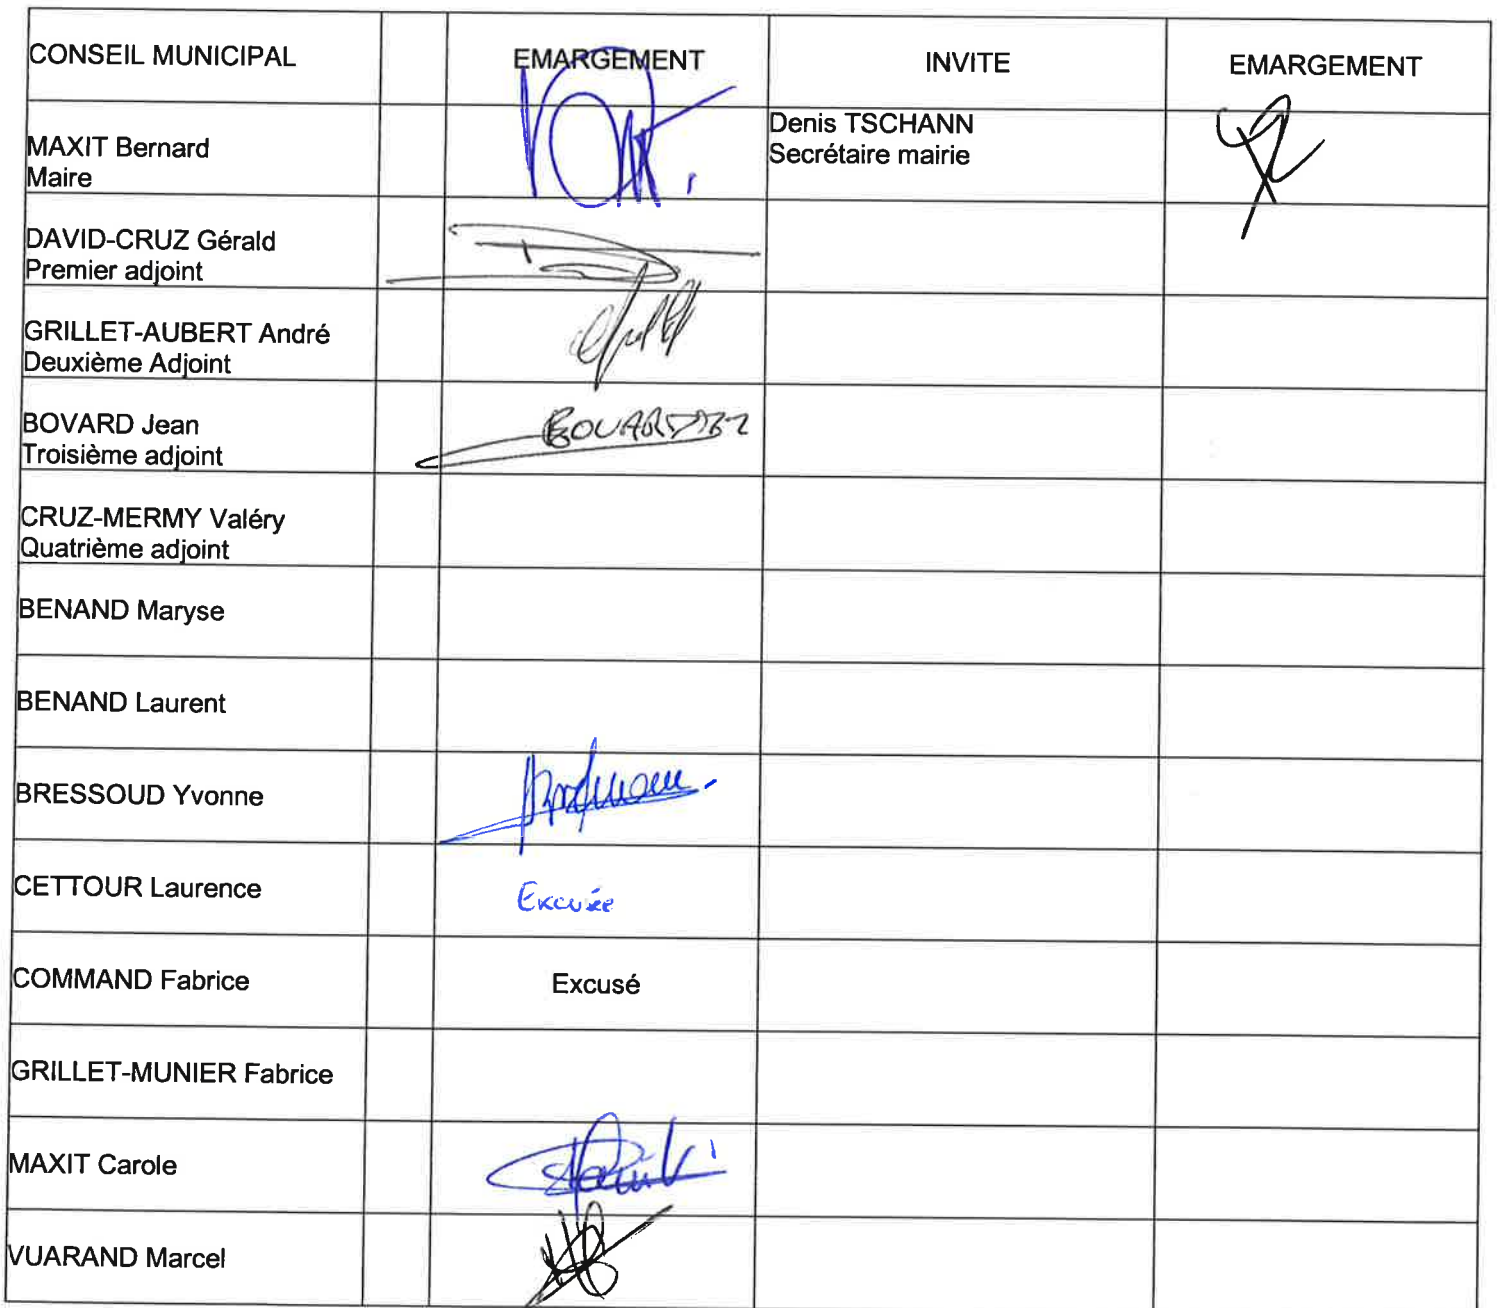 CONSEIL MUNICIPAL
EMARGEMENT
INVITE
EMARGEMENT
MAXIT Bernard
Maire
Denis TSCHANN
Secrétaire mairie
DAVID-CRUZ Gérald
Premier adjoint
GRILLET-AUBERT André
Deuxième Adjoint
BOVARD Jean
Troisième adjoint
CRUZ-MERMY Valéry
Quatrième adjoint
BENAND Maryse
BENAND Laurent
BRESSOUD Yvonne
CETTOUR Laurence
Excusée
COMMAND Fabrice
Excusé
GRILLET-MUNIER Fabrice
MAXIT Carole
VUARAND Marcel